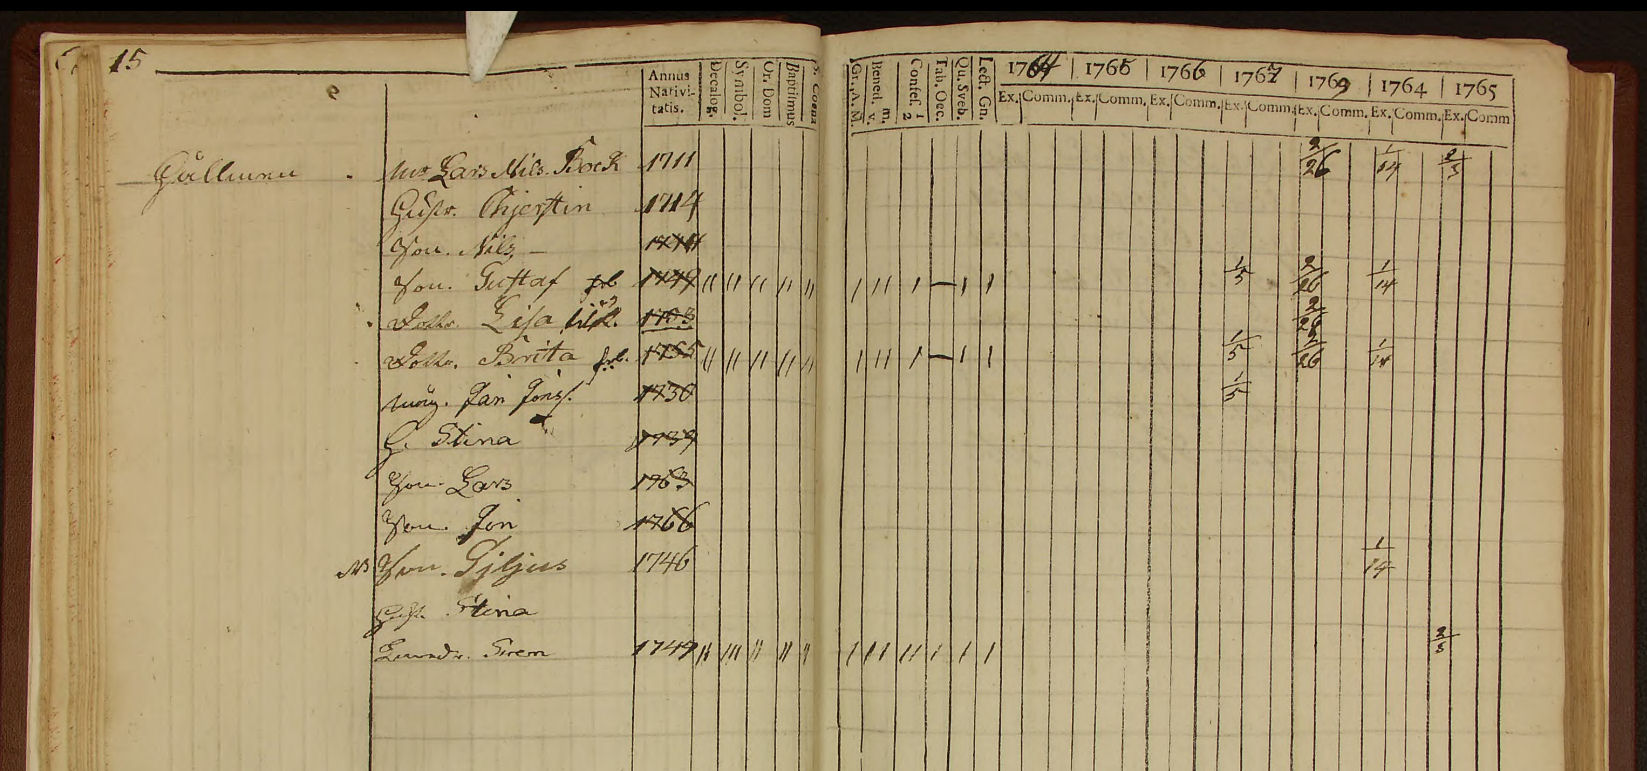 15
Annus Nativitatis. Decalog. Symbol. Or. Dom Baptismus S. Coena Gr. A. M. Bened. m. v. Confes. 1 2 Tab. Oec. Qu. Sveb. Lect. Gn. 1764 1765 1766 1767 1769 1764 1765
Ex. Comm. Ex. Comm. Ex. Comm. Ex. Comm. Ex. Comm. Ex. Comm. Ex. Comm
Gällmen Lars Nils. Bock 1711 2/26 1/14 2/3
Hustr. Chjerstin 1714
Son. Nils
Son. Gustaf 1749 1/5 2/26 1/14
Dottr. Lisa 1753 2/26
Dottr. Brita 1755 1/5 2/26 1/14
Jan Jöns. 1730 1/5
H. Stina 1739
Son. Lars 1763
Son. Jon 1766
Son. Giljus 1746 1/14
Stina
1749 2/3